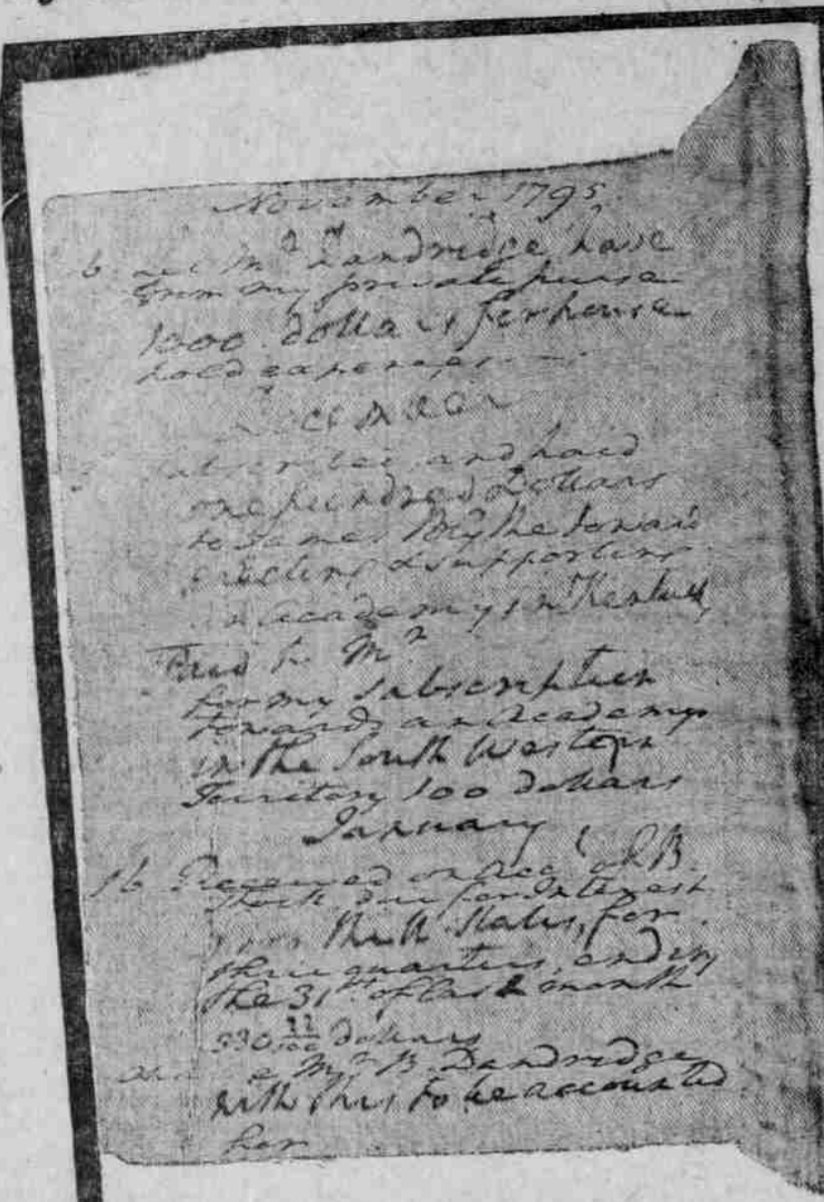 November 1795.
6 Let Mr. Dandridge have
from my private purse
1000 dollars for house
hold expenses
and paid
one hundred Dollars
to James Blythe towards
erecting & supporting
an Academy in Kentucky
Mr
for my subscription
towards an Academy
in the South Western
Territory 100 dollars
January
16 Received on Acct of B.
Stock due for Interest
from the U States, for
three quarters, ending
the 31st of last month
330 11/100 dollars
Mr B. Dandridge
with this to be accounted
for